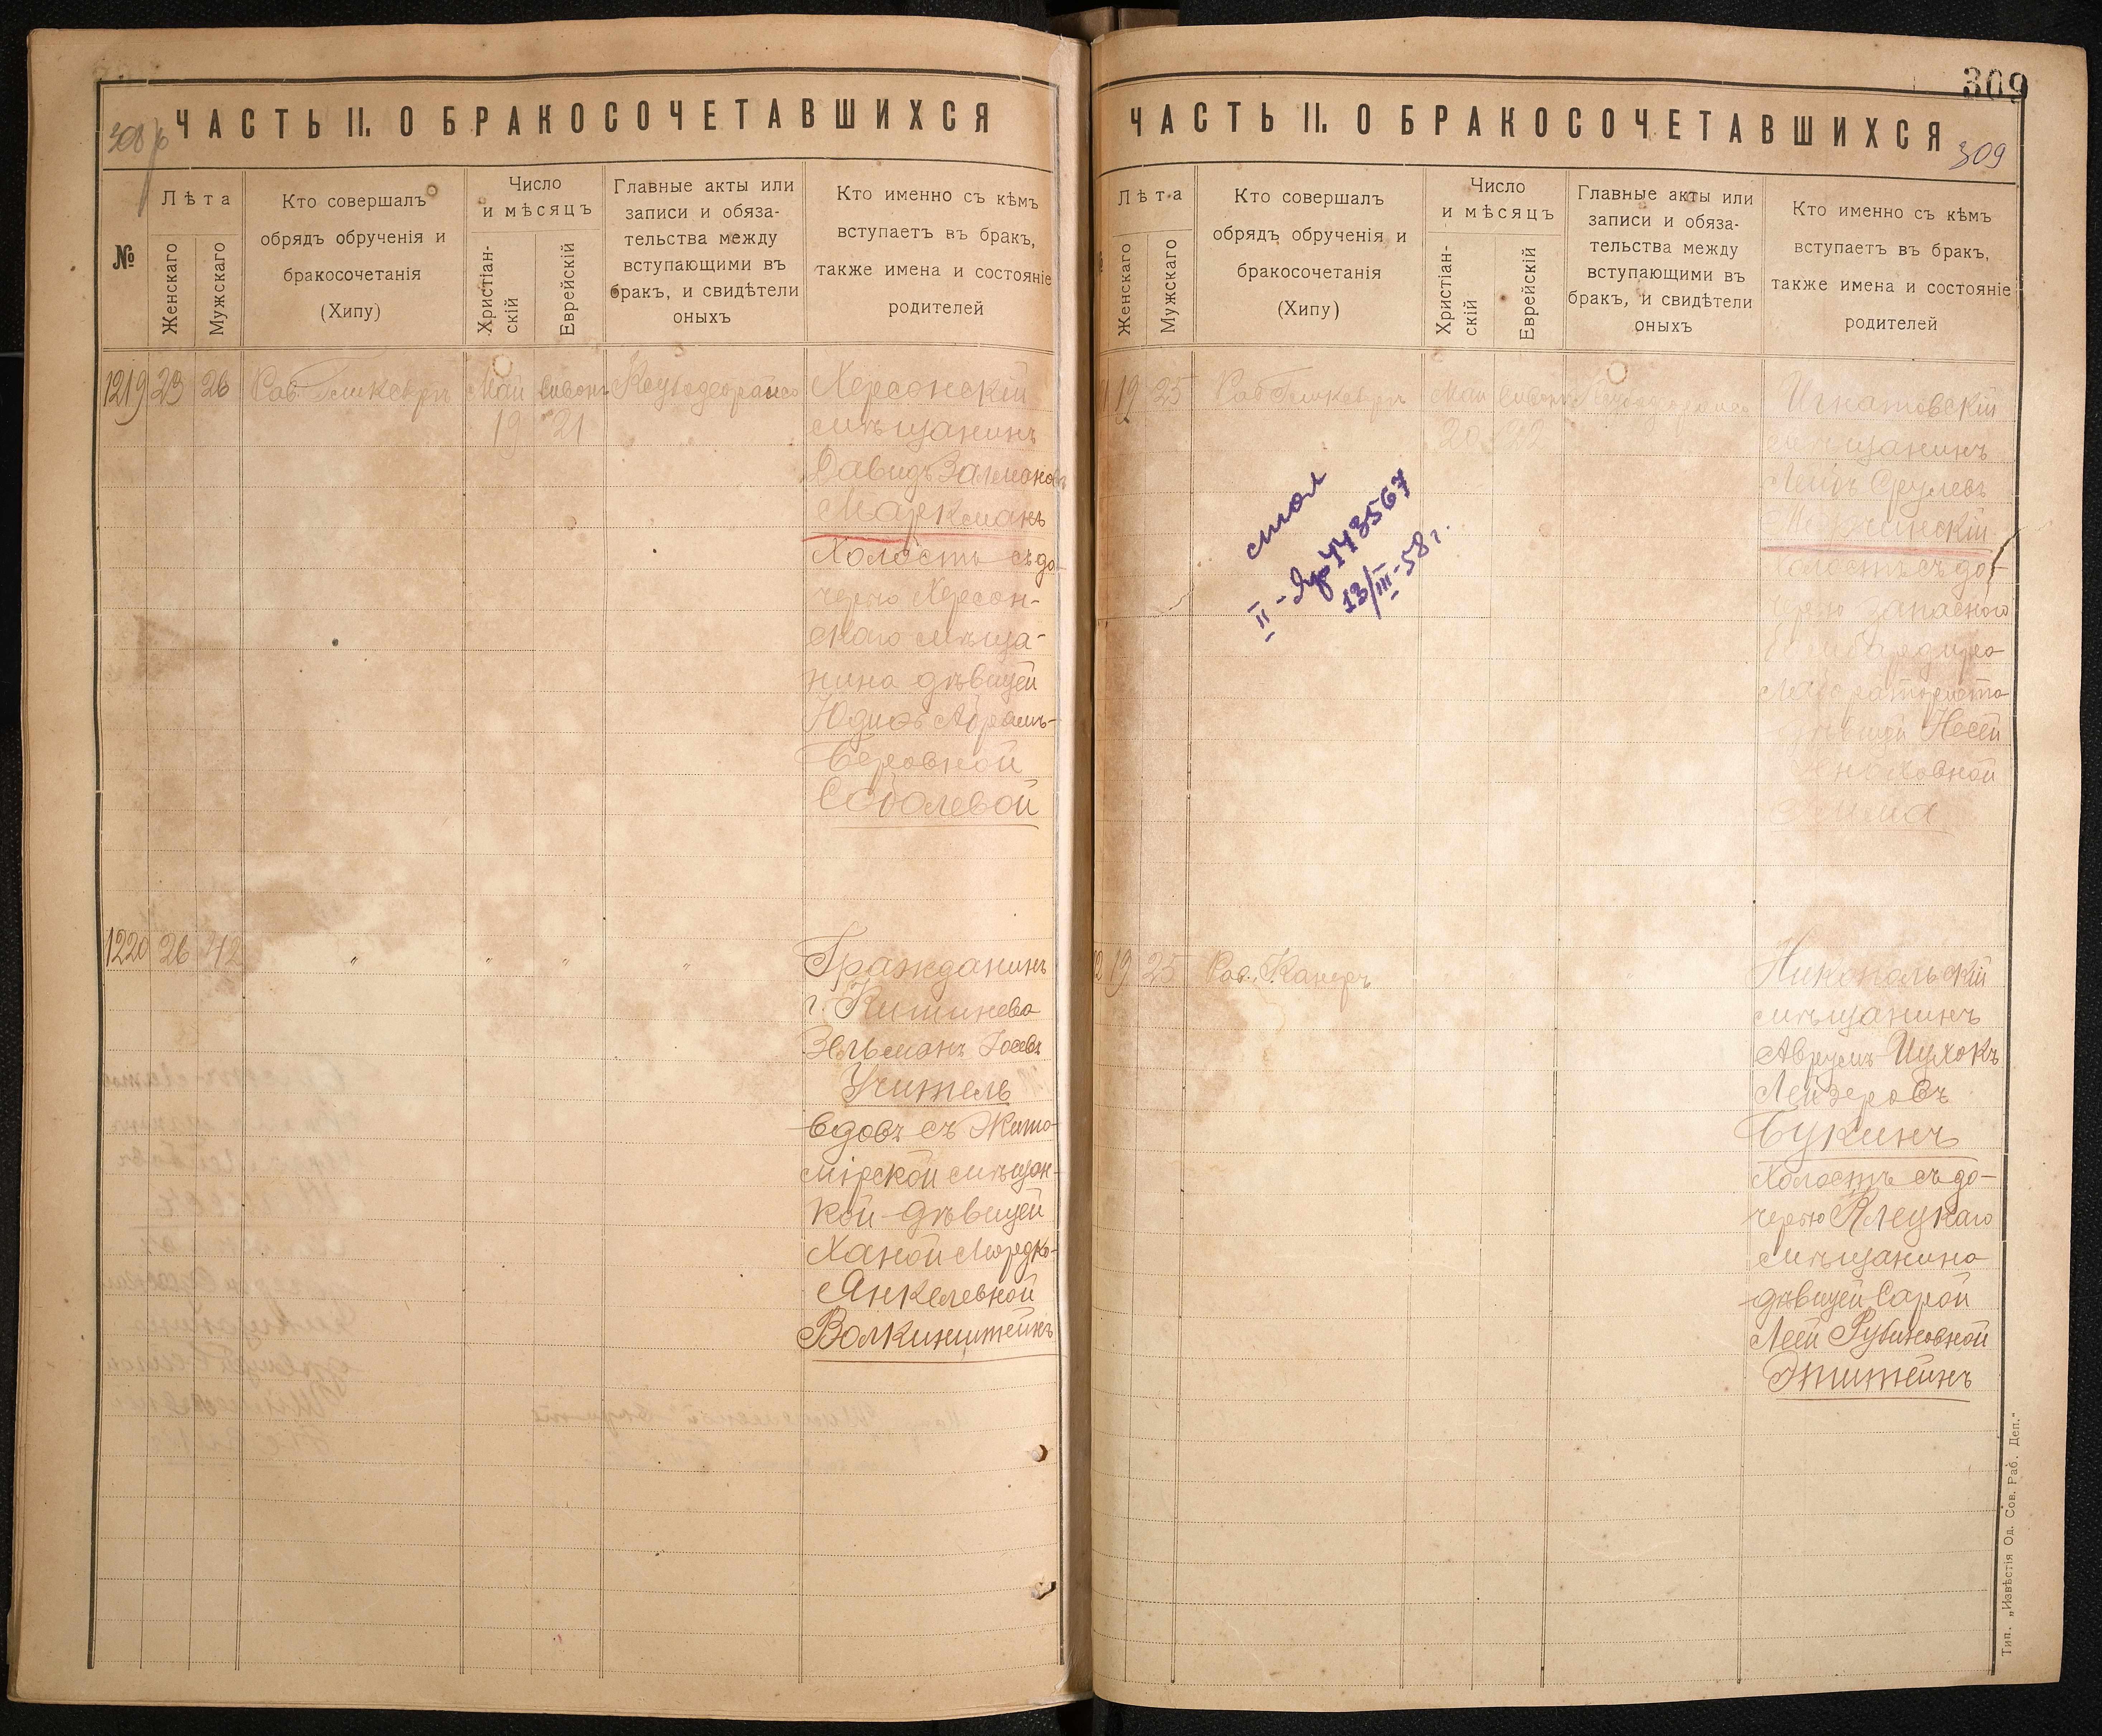 308 об
ЧАСТЬ II. О БРАКОСОЧЕТАВШИХСЯ
№
Лѣта
Женскаго
Мужскаго
Кто совершалъ
обрядъ обрученія и
бракосочетанія
(Хипу)
Число
и мѣсяцъ
Христіан-
скій
Еврейскій
Главные акты или
записи и обяза-
тельства между
вступающими въ
бракъ, и свидѣтели
оныхъ
Кто именно съ кѣмъ
вступаетъ въ бракъ,
также имена и состояніе
родителей
1219 23 26 Рав. Май Сивонъ
19 21
Херсонскій
мѣщанинъ
Давидъ Залмановъ
Маркманъ
Холостъ съ до-
черью Херсон-
скаго мѣща-
нина дѣвицей
Юдиѳь Абрамъ-
Беровной
Соболевой
1220 26 42 " " " "
Гражданинъ
г. Кишинева
Зельманъ Іосевъ
Учитель
вдовъ съ Жито-
мірской мѣщан-
кой дѣвицей
Ханой Мордко-
Янкелевной
Волкинштейнъ
309
ЧАСТЬ II. О БРАКОСОЧЕТАВШИХСЯ
309
Лѣта
Женскаго
Мужскаго
Кто совершалъ
обрядъ обрученія и
бракосочетанія
(Хипу)
Число
и мѣсяцъ
Христіан-
скій
Еврейскій
Главные акты или
записи и обяза-
тельства между
вступающими въ
бракъ, и свидѣтели
оныхъ
Кто именно съ кѣмъ
вступаетъ въ бракъ,
также имена и состояніе
родителей
19 25 Рав. Май Сивонъ
20 22
Игнатовскій
мѣщанинъ
Лейбъ Срулевъ
Холостъ съ до-
черью запаснаго
бомбардира
лабораториста
дѣвицей Несей
Еноховной
II - 443567
13/III-58 г.
19 25 Рав. Канеръ
Никопольскій
мѣщанинъ
Аврумъ Ицхокъ
Лейзеровъ
Букинъ
Холостъ съ до-
черью Клецкаго
мѣщанина
дѣвицей Сарой
Леей Рубиновной
Эпштейнъ
Тип. „Извѣстія Од. Сов. Раб. Деп."